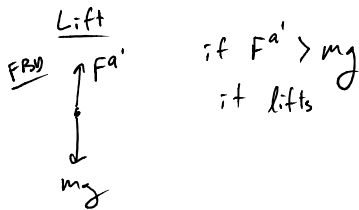 Lift
FBD
F^a'
mg
if F^a' > mg
it lifts